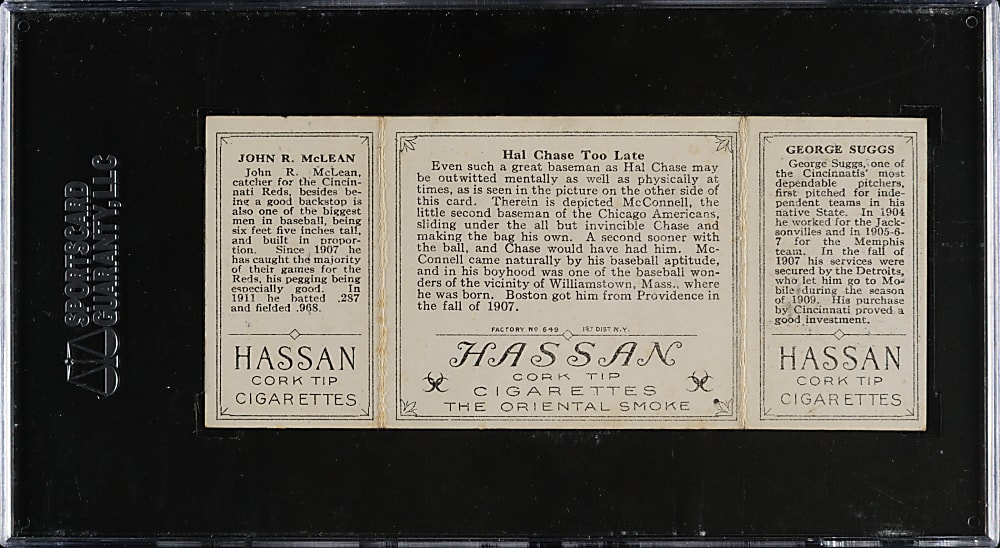 SPORTSCARD
GUARANTY, LLC
JOHN R. McLEAN
John R. McLean,
catcher for the Cincin-
nati Reds, besides be-
ing a good backstop is
also one of the biggest
men in baseball, being
six feet five inches tall,
and built in propor-
tion. Since 1907 he
has caught the majority
of their games for the
Reds, his pegging being
especially good. In
1911 he batted .287
and fielded .968.
HASSAN
CORK TIP
CIGARETTES
Hal Chase Too Late
Even such a great baseman as Hal Chase may
be outwitted mentally as well as physically at
times, as is seen in the picture on the other side of
this card. Therein is depicted McConnell, the
little second baseman of the Chicago Americans,
sliding under the all but invincible Chase and
making the bag his own. A second sooner with
the ball, and Chase would have had him. Mc-
Connell came naturally by his baseball aptitude,
and in his boyhood was one of the baseball won-
ders of the vicinity of Williamstown, Mass., where
he was born. Boston got him from Providence in
the fall of 1907.
FACTORY No 649 1st DIST. N.Y.
HASSAN
CORK TIP
CIGARETTES
THE ORIENTAL SMOKE
GEORGE SUGGS
George Suggs, one of
the Cincinnatis' most
dependable pitchers,
first pitched for inde-
pendent teams in his
native State. In 1904
he worked for the Jack-
sonvilles and in 1905-6-
7 for the Memphis
team. In the fall of
1907 his services were
secured by the Detroits,
who let him go to Mo-
bile during the season
of 1909. His purchase
by Cincinnati proved a
good investment.
HASSAN
CORK TIP
CIGARETTES